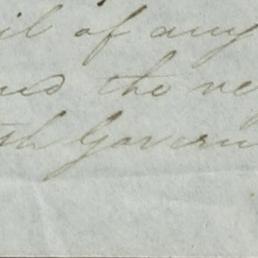 il of any
ed the ve
sh Govern